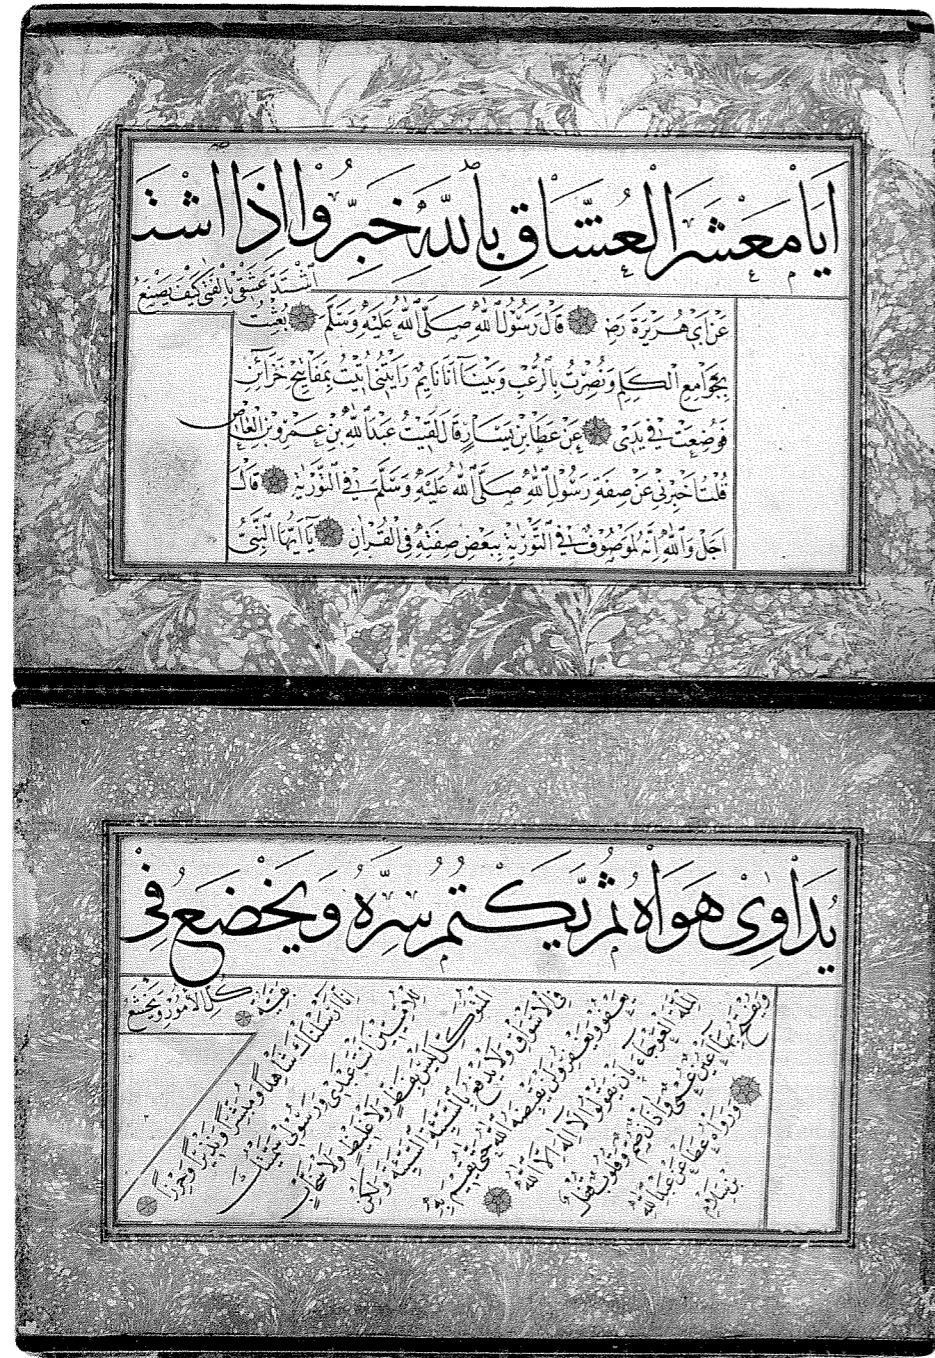 اَيَا مَعْشَرَ الْعُشَّاقِ بِاللّٰهِ خَبِّرُوا اِذَا اشْتَ
اشْتَدَّ عِشْقٌ بِالْفَتٰى كَيْفَ يَصْنَعُ
عَنْ اَبِي هُرَيْرَةَ رَضِ قَالَ رَسُوْلُ اللّٰهِ صَلَّى اللّٰهُ عَلَيْهِ وَسَلَّمَ بُعِثْتُ
بِجَوَامِعِ الْكَلِمِ وَنُصِرْتُ بِالرُّعْبِ وَبَيْنَآ اَنَا نَايِمٌ رَاَيْتُنِى اُتِيْتُ بِمَفَاتِيْحِ خَزَآئِنِ
فَوُضِعَتْ فِي يَدِىْ عَنْ عَطَا بْنِ يَسَارٍ قَالَ لَقِيْتُ عَبْدَ اللّٰهِ بْنَ عَمْرِو بْنِ الْعَاصِ
قُلْتُ اَخْبِرْنِي عَنْ صِفَةِ رَسُوْلِ اللّٰهِ صَلَّى اللّٰهُ عَلَيْهِ وَسَلَّمَ فِي التَّوْرٰيةِ قَالَ
اَجَلْ وَاللّٰهِ اِنَّهُ لَمَوْصُوْفٌ فِي التَّوْرٰيةِ بِبَعْضِ صِفَتِهِ فِي الْقُرْاٰنِ يَآ اَيُّهَا النَّبِيُّ
يُدَاوِيْ هَوَاهُ ثُمَّ يَكْتُمُ سِرَّهُ وَيَخْضَعُ فِيْ
كُلِّ الْاُمُوْرِ وَيَخْشَعُ
اِنَّا اَرْسَلْنَاكَ شَاهِدًا وَمُبَشِّرًا وَنَذِيْرًا وَحِرْزًا
لِلْاُمِّيِّيْنَ اَنْتَ عَبْدِيْ وَرَسُوْلِيْ سَمَّيْتُكَ
الْمُتَوَكِّلَ لَيْسَ بِفَظٍّ وَلَا غَلِيْظٍ وَلَا سَخَّابٍ
فِي الْاَسْوَاقِ وَلَا يَدْفَعُ بِالسَّيِّئَةِ السَّيِّئَةَ وَلٰكِنْ
يَعْفُوْ وَيَغْفِرُ وَلَنْ يَقْبِضَهُ اللّٰهُ حَتّٰى يُقِيْمَ بِهِ
الْمِلَّةَ الْعَوْجَآءَ بِاَنْ يَقُوْلُوْا لَا اِلٰهَ اِلَّا اللّٰهُ
وَيَفْتَحُ بِهَا اَعْيُنًا عُمْيًا وَاٰذَانًا صُمًّا وَقُلُوْبًا غُلْفًا
وَرَوَاهُ عَطَا عَنْ عَبْدِ اللّٰهِ
بْنِ سَلَامٍ